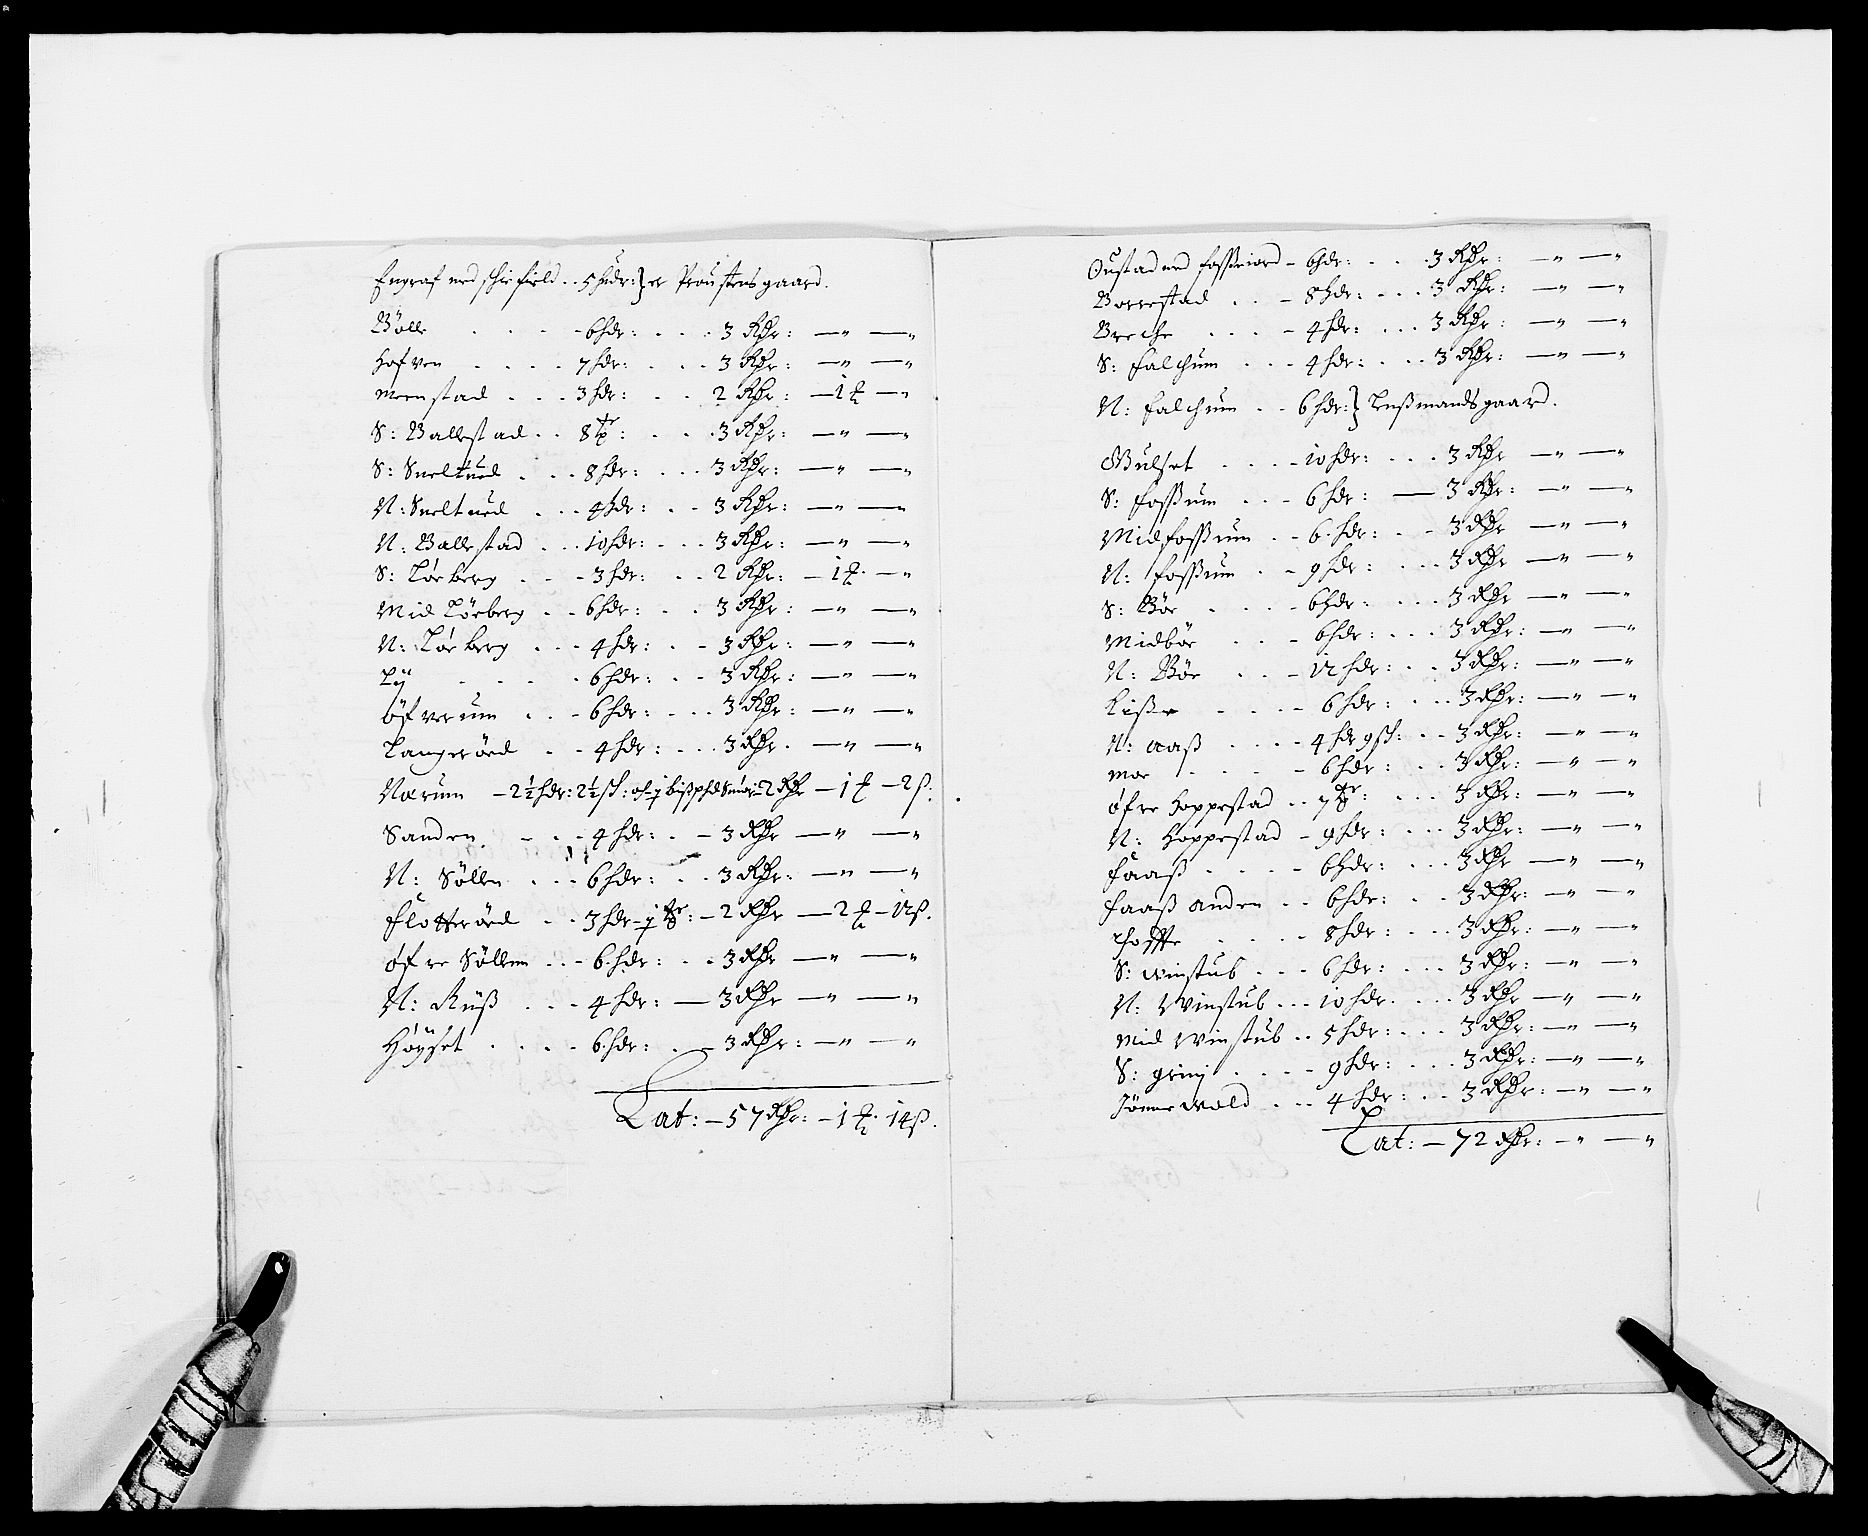 Engraf med schifield . . 5 hudr: } er Proustens gaard.
Bølle . . . . 6 hdr: . . . 3 Rdr: — " — "
Hofven . . . . 7 hdr: . . . 3 Rdr: — " — "
Meenstad . . . 3 hdr: . . 2 Rdr: — 1 ƒ — "
S: Ballestad . . 8 tr: . . . 3 Rdr: — " — "
S: Sneltued . . . 8 hdr: . . . 3 Rdr: — " — "
N: Sneltued . . . 4 hdr: . . 3 Rdr: — " — "
N: Ballestad . . . 10 hdr: . . . 3 Rdr: — " — "
S: Lørberg . . . 3 hdr: . . 2 Rdr: — 1 ƒ. — "
Mid Lörberg . . 6 hdr: . . 3 Rdr: — " — "
N: Lørberg . . . 4 hdr: . . 3 Rdr: — " — "
Lÿ . . . . 6 hdr: . . 3 Rdr: — " — "
Öfverum . . . 6 hdr: . . . 3 Rdr: — " — "
Langeröed . . 4 hdr: . . . 3 Rdr. — " — "
Narum — 2½ hdr: 2½ sch: och 1 bißphd Smör — 2 Rdr — 1 ƒ — 2 ß:
Sanden . . . 4 hdr: . . 3 Rdr — " — "
N: Söllen . . . 6 hdr: . . 3 Rdr: — " — "
Flotteröed . . 3 hdr — 1 tr: — 2 Rdr — 2 ƒ — 12 ß.
öfre Söllen . . . 6 hdr: . . 3 Rdr — " — "
N: Rüß . . . 4 hdr: — 3 Rdr — " — "
Höyset . . . . 6 hdr: . — 3 Rdr: — " — "
Lat: — 57 Rdr: — 1 ƒ. 14 ß.
Oustad med Foßeiord — 6 hdr: . . . 3 Rdr: — " — "
Borrestad . . . 8 hdr: . . . 3 Rdr: — " — "
Breche . . . . 4 hdr: . . . 3 Rdr: — " — "
S: Falchum . . . 4 hdr: . . . 3 Rdr: — " — "
N: Falchum . . 6 hdr: } Lenßmands gaard.
Gulset . . . . 10 hdr: . . . 3 Rdr — " — "
S: Foßum . . . 6 hdr: — 3 Rdr: — " — "
Midfoßum . . 6 hdr: . . 3 Rdr — " — "
N: Foßum . . 9 hdr: . . . 3 Rdr — " — "
S: Böe . . . . 6 hdr: . . . 3 Rdr — " — "
Midböe . . . 6 hdr: . . . 3 Rdr: — " — "
N: Böe . . . 12 hdr: . . 3 Rdr: — " — "
Liße . . . . 6 hdr: . . . 3 Rdr: — " — "
N: Aaß . . . . 4 hdr 9 sch: . . 3 Rdr: — " — "
Moe . . . . 6 hdr: . . 3 Rdr: — " — "
öfre Hoppestad . . 7 tr: . . . 3 Rdr: — " — "
N: Hoppestad — 9 hdr: . . . 3 Rdr: — " — "
Faaß . . . . 6 hdr: . . . 3 Rdr — " — "
Faaß anden . . 6 hdr: . . 3 Rdr: — " — "
. . . . 8 hdr: . . . 3 Rdr: — " — "
S: Winstub . . . 6 hdr: . . . 3 Rdr: — " — "
N: Winstub . . . 10 hdr. . . . 3 Rdr — " — "
Mid Winstub . . 5 hdr: . . . 3 Rdr: — " — "
S: Grinj . . . . 9 hdr: . . . 3 Rdr: — " — "
Jönnewold . . . 4 hdr: . . 3 Rdr: — " — "
Lat: — 72 Rdr: — " — "